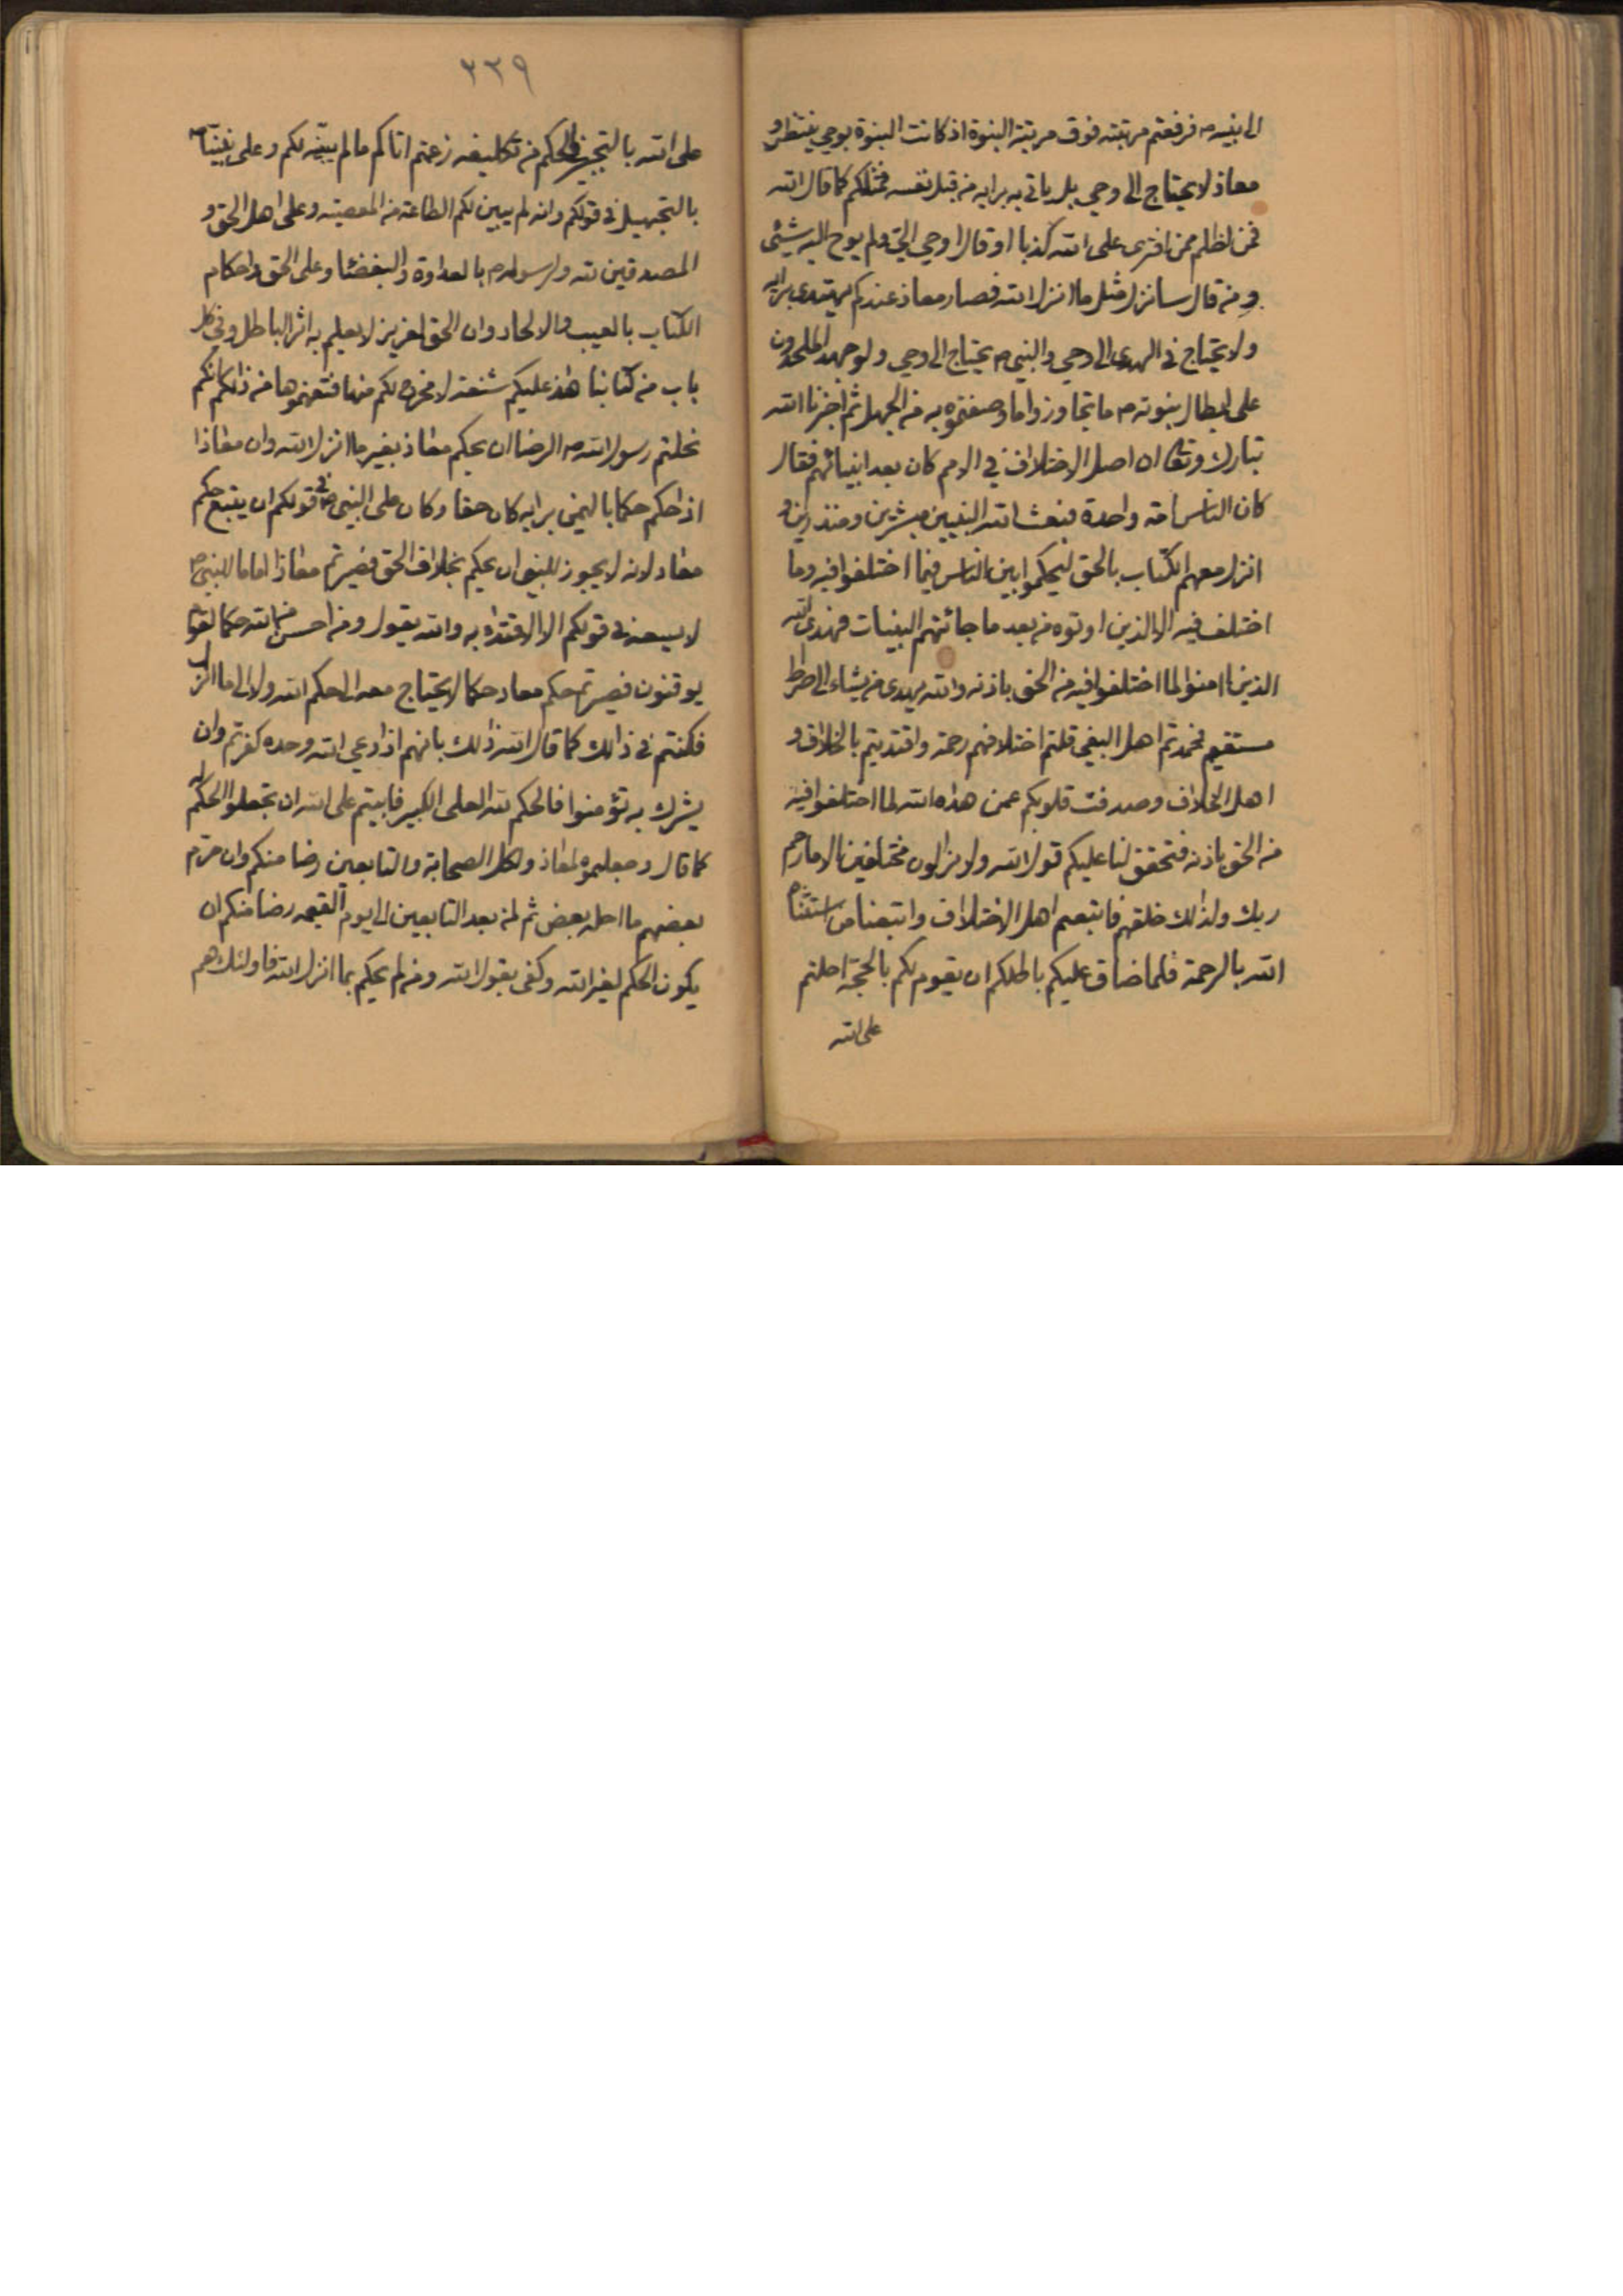 الى نبيه ص فرفعتم مرتبته فوق مرتبة النبوة اذ كانت النبوة بوحي ينتظر و
معاذ لا يحتاج الى وحي بل ياتي به برايه من قبل نفسه فمثلكم كما قال الله
فمن اظلم ممن افترى على الله كذبا او قال اوحي الي ولم يوح اليه شيئى
و من قال سانزل مثل ما انزل الله فصار معاذ عندكم يهتدى برايه
ولا يحتاج فى الهدى الى وحي والنبي ص يحتاج الى وحي ولو جهد الملحدون
على ابطال نبوته ص ما تجاوزوا ما وصفتموه به من الجهل ثم اخبرنا الله
تبارك وتعا ان اصل الاختلاف في الامم كان بعد انبيائهم فقال
كان الناس امة واحدة فبعث الله النبيين مبشرين و منذرين و
انزل معهم الكتاب بالحق ليحكموا بين الناس فيما اختلفوا فيه وما
اختلف فيه الا الذين اوتوه من بعد ما جائتهم البينات فهدى الله
الذين امنوا لما اختلفوا فيه من الحق باذنه والله يهدى من يشاء الى صراط
مستقيم فحمدتم اهل البغى قلتم اختلافهم رحمة واقتديتم بالخلاف و
اهل الخلاف وصدفت قلوبكم عمن هداه الله لما اختلفوا فيه
من الحق باذنه فتحقق لنا عليكم قول الله ولا يزالون مختلفين الا ما رحم
ربك ولذلك خلقهم فاتبعتم اهل الاختلاف واتبعنا من استثناه
الله بالرحمة فلما ضاق عليكم باطلكم ان يقوم لكم بالحجة احلتم
على الله
٢٣٩
على الله بالتجوير فى الحكم من تكليفه زعمتم اتاكم ما لم يبينه لكم وعلى نبينا ص
بالتجهيل فى قولكم وانه لم يبين لكم الطاعة من المعصية وعلى اهل الحق و
المصدقين لله ولرسوله ص بالعداوة والبغضاء وعلى الحق واحكام
الكتاب بالعيب والالحاد وان الحق لعزيز لا يعليم به اثر الباطل وفى كل
باب من كتابنا هذا عليكم شنعة لا مخرج لكم منها فتفهموها من ذلكم انكم
نحلتم رسول الله ص الرضا ان يحكم معاذ بغير ما انزل الله وان معاذا
اذا حكم حكما باليمن برايه كان حقا وكان على النبي ص فى قولكم ان يتبع حكم
معاد لانه لا يجوز للنبى ان يحكم بخلاف الحق فصيرتم معاذا اماما للنبي ص
لا يسعه فى قولكم الا الاقتداء به والله يقول ومن احسن من الله حكما لقوم
يوقنون فصيرتم حكم معاد حكما لا يحتاج معه الى حكم الله ولا الى ما انزل
فكنتم فى ذالك كما قال الله ذلك بانهم اذا دعي الله وحده كفرتم وان
يشرك به تؤمنوا فالحكم لله العلى الكبير فابيتم على الله ان تجعلوا الحكم له
كما قال وجعلتموه لمعاذ ولكل الصحابة والتابعين رضا منكم وان حرم
بعضهم ما احل بعض ثم لمن بعد التابعين الى يوم القيمه رضا منكم ان
يكون الحكم لغير الله وكفى بقول الله ومن لم يحكم بما انزل الله فاولئك هم